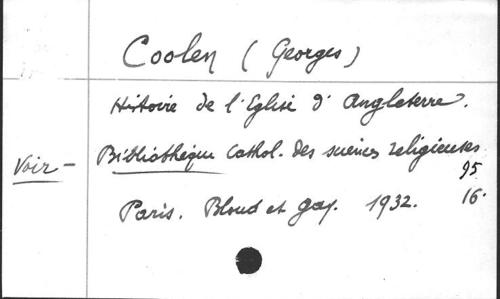 Coolen (Georges)
Histoire de l'Eglise d'Angleterre.
Voir - Bibliothèque Cathol. des sciences religieuses
95
Paris. Bloud et Gay. 1932. 16.